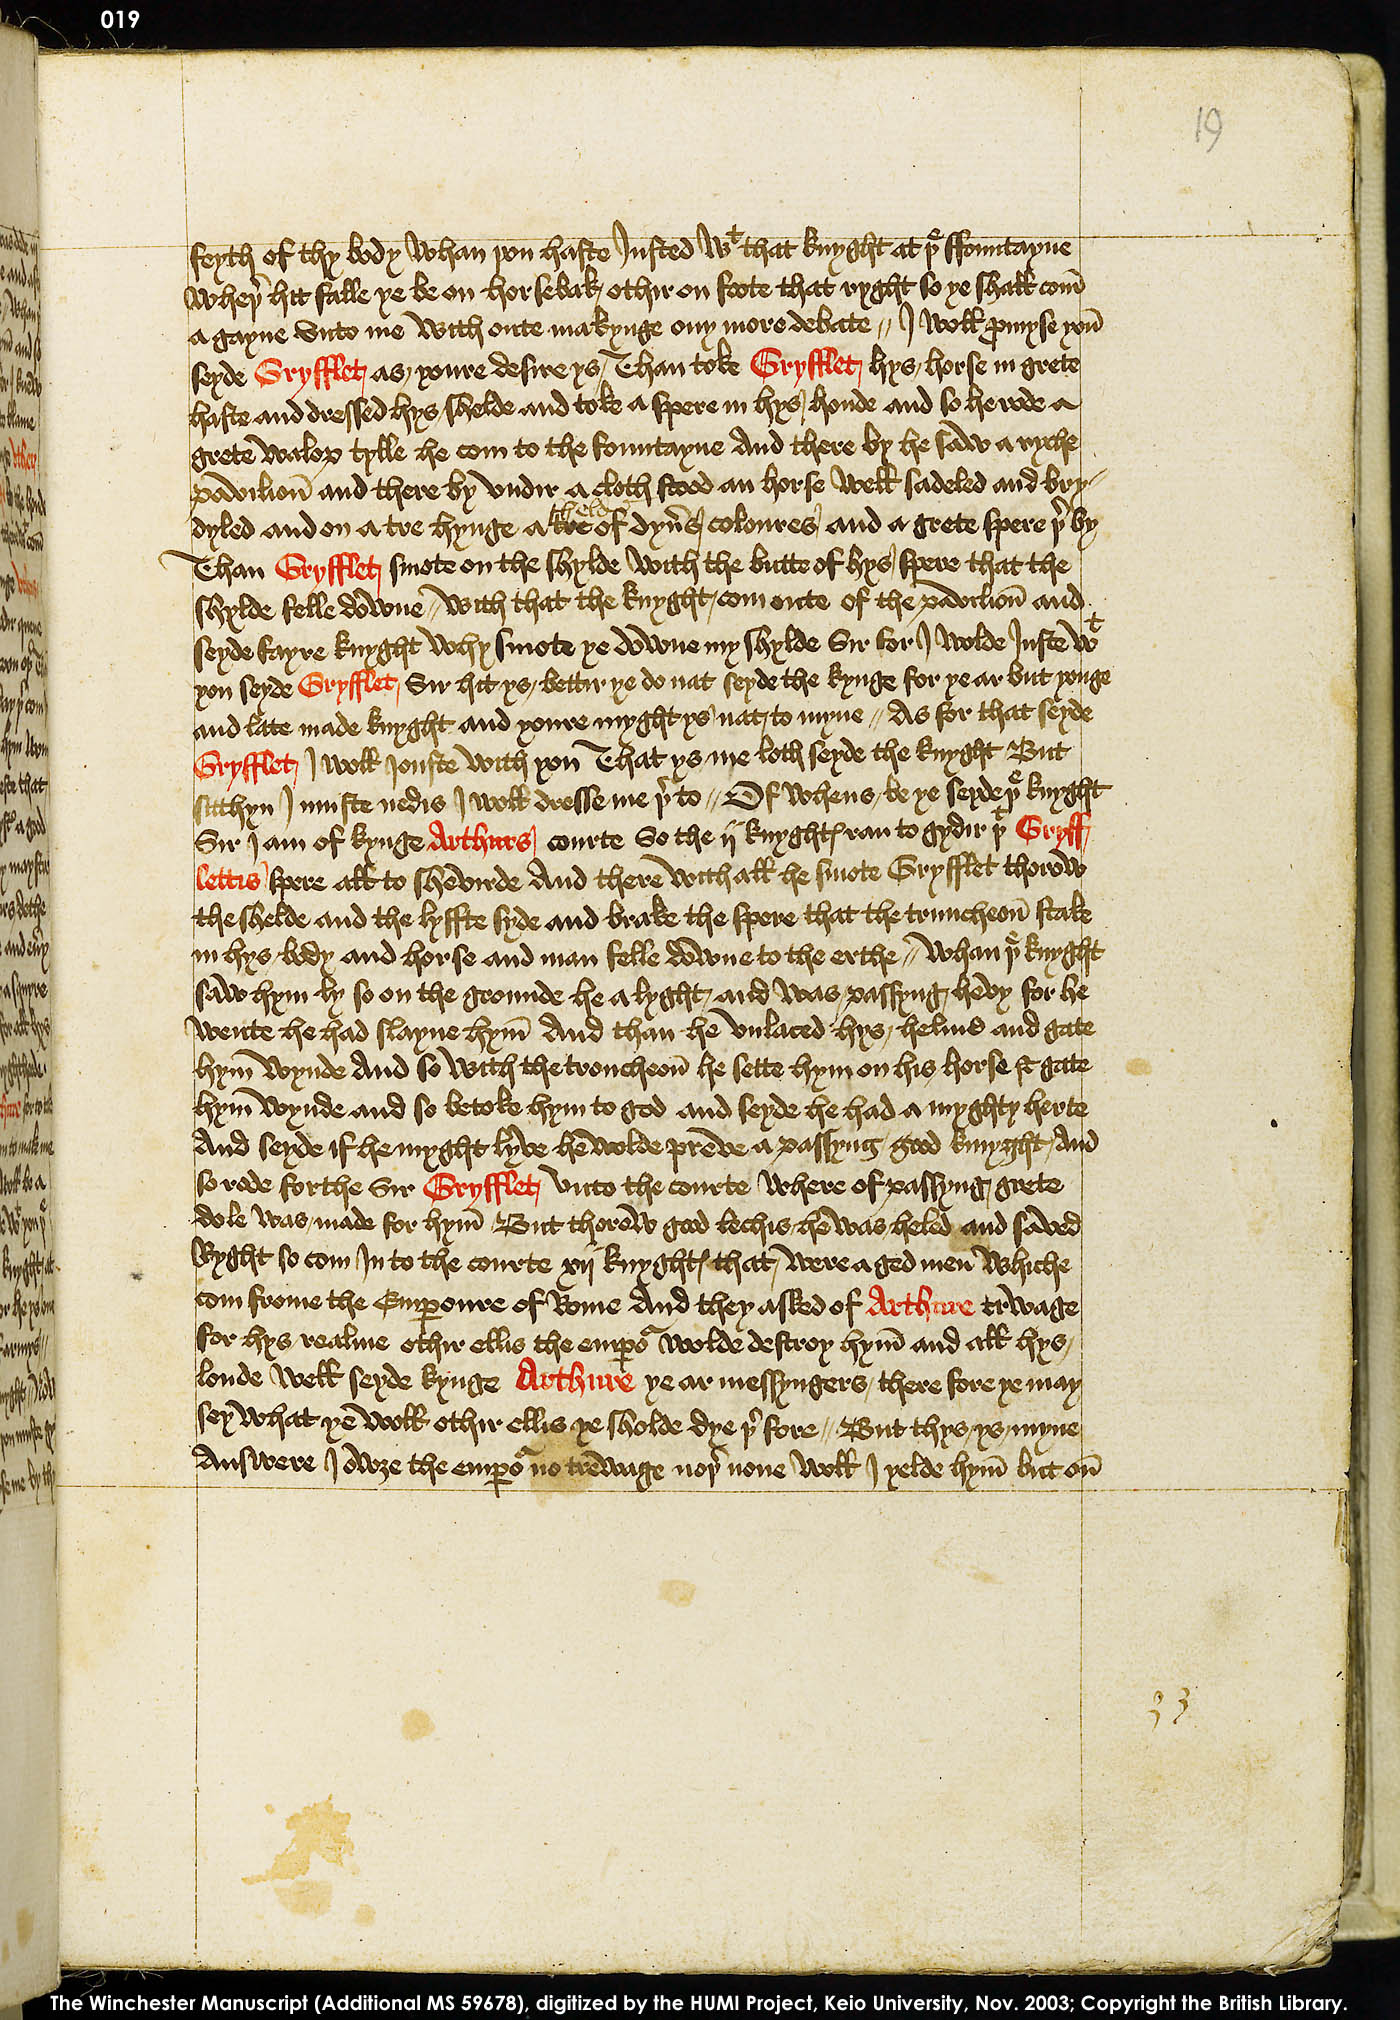 019
19
feyth of thy body whan þou haste Justed wᵗ that knyght at þᵉ ffountayne
wheþ̉ hit falle ye be on horsebak othir on foote that ryght so ye shall com̄
a gayne vnto me with oute makynge ony more debate // I woll ꝓmyse you
seyde Gryfflet as youre desire ys / Than toke Gryfflet hys horse in grete
haste and dressed hys shelde and toke a spere in hys honde and so he rode a
grete walop tylle he com to the fountayne And there by he saw a ryche
pavilion̄ and there by vndir a cloth stood an horse well sadeled and bry
dyled and on a tre hynge a sheld of dyūs coloures and a grete spere þ̉ by
Than Gryfflet smote on the shylde with the butte of hys spere that the
shylde felle downe // with that the knyght com oute of the pavilion̄ and
seyde fayre knyght why smote ye downe my shylde Sir for I wolde Juste wᵗ
you seyde Gryfflet Sir hit ys bettir ye do nat seyde the kynge for ye ar but yonge
and late made knyght and youre myght ys nat to myne // As for that seyde
Gryfflet I woll jouste with you That ys me loth seyde the knyght But
sitthyn I muste nedis I woll dresse me þ̉to // Of whens be ye seyde þᵉ knyght
Sir I am of kynge Arthurs courte So the ij knyghtꝭ ran to gydir þᵗ Gryff
lettis spere all to shevirde And there with all he smote Gryfflet thorow
the shelde and the lyffte syde and brake the spere that the truncheon̄ stake
in hys body and horse and man felle downe to the erthe // Whan þᵉ knyght
saw hym ly so on the grounde he a lyght and was passyng hevy for he
wente he had slayne hym̄ And than he vnlaced hys helme and gate
hym̄ wynde And so with the troncheon̄ he sette hym on his horse & gate
hym̄ wynde and so betoke hym to god and seyde he had a myghty herte
And seyde if he myght lyve he wolde preve a passyng good knyght And
so rode forthe Sir Gryfflet vnto the courte where of passyng grete
dole was made for hym̄ But thorow good lechis he was heled and saved
Ryght so com In to the courte xij knyghtꝭ that were aged men whiche
com frome the Emꝑoure of Rome And they asked of Arthure trwage
for hys realme othir ellis the emꝑoʳ wolde destroy hym̄ and all hys
londe Well seyde kynge Arthure ye ar messyngers there fore ye may
sey what ye woll othir ellis ye sholde dye þ̉ fore // But thys ys myne
Answere I owze the emꝑoʳ no trewage noþ̉ none woll I yelde hym̄ but on̄
33
The Winchester Manuscript (Additional MS 59678), digitized by the HUMI Project, Keio University, Nov. 2003; Copyright the British Library.